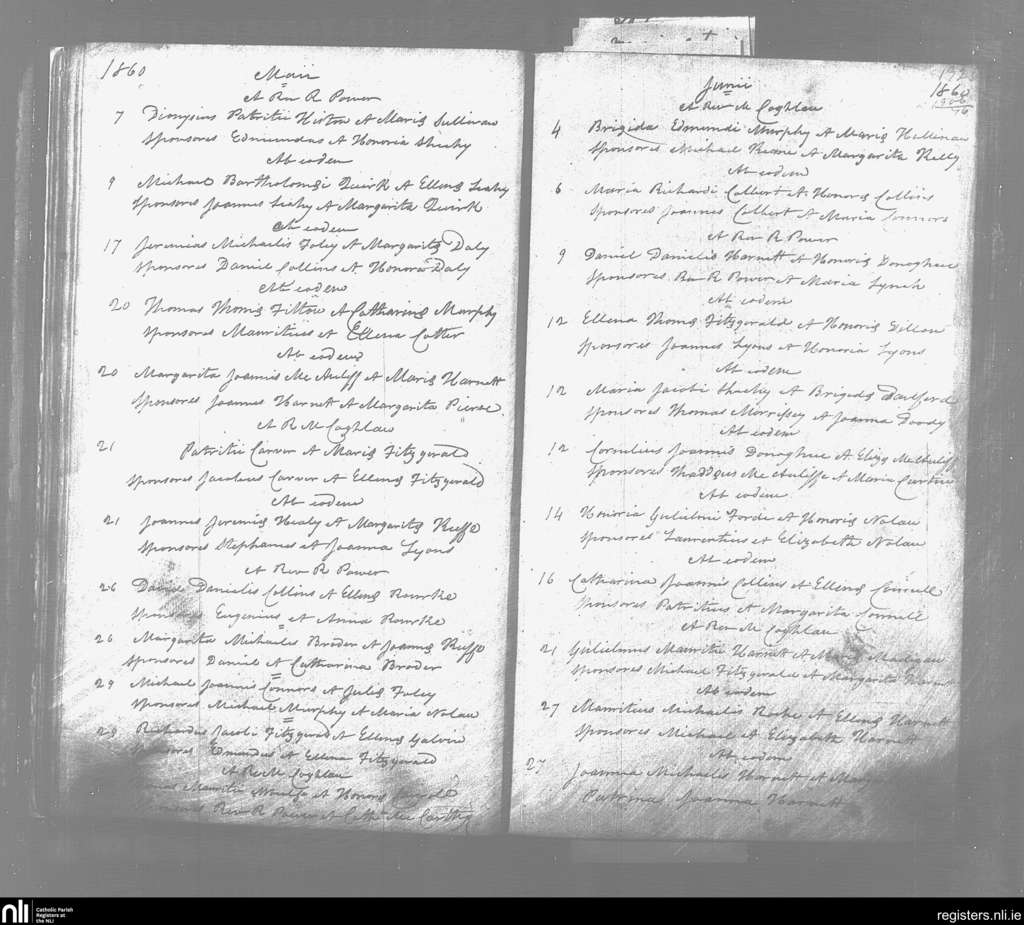 1860
Maii
A Rev R Power
7 Dionysius Patritii Histon et Mariæ Sullivan
Sponsores Edmundus et Honoria Sheehy
Ab eodem
9 Michael Bartholomæi Quirk et Ellenæ Leahy
Sponsores Joannes Leahy et Margarita Quirk
Ab eodem
17 Jeremias Michaelis Foley et Margaritæ Daly
Sponsores Daniel Collins et Honora Daly
Ab eodem
20 Thomas Thomæ Fitton et Catharinæ Murphy
Sponsores Mauritius et Ellena Cotter
Ab eodem
20 Margarita Joannis Mc Auliff et Mariæ Harnett
Sponsores Joannes Harnett et Margarita Pierse
A R M Coghlan
21 Patritii Carver et Mariæ Fitzgerald
Sponsores Jacobus Carver et Ellena Fitzgerald
Ab eodem
21 Joannes Jeremiæ Healy et Margaritæ Keffe
Sponsores Stephanus et Joanna Lyons
A Rev R Power
26 David Danielis Collins et Ellenæ Rourke
Sponsores Eugenius et Anna Rourke
26 Margarita Michaelis Broder et Joannæ Keffe
Sponsores Daniel et Catharina Broder
29 Michael Joannis Connors et Juliæ Foley
Sponsores Michael Murphy et Maria Nolan
29 Richardus Jacobi Fitzgerald et Ellenæ Galvin
Sponsores Edmundus et Ellena Fitzgerald
A Rev M Coghlan
Mauritii Woulfe et Honoræ
Rev R Power et Cath Mc Carthy
1860
Junii
A Rev M Coghlan
4 Brigida Edmundi Murphy et Mariæ Hallinan
Sponsores Michael Keane et Margarita Kelly
Ab eodem
6 Maria Richardi Colbert et Honoræ Collins
Sponsores Joannes Colbert et Maria Connors
A Rev R Power
9 Daniel Danielis Harnett et Honoriæ Donoghue
Sponsores Rev R Power et Maria Lynch
Ab eodem
12 Ellena Thomæ Fitzgerald et Honoriæ Dillon
Sponsores Joannes Lyons et Honoria Lyons
Ab eodem
12 Maria Jacobi Sheehy et Brigidæ
Sponsores Thomas Morrissey et Joanna Doody
Ab eodem
12 Cornelius Joannis Donoghue et Elizæ McAuliff
Sponsores Thaddeus Mc Auliffe et Maria
Ab eodem
14 Honoria Gulielmi Forde et Honoriæ Nolan
Sponsores Laurentius et Elizabeth Nolan
Ab eodem
16 Catharina Joannis Collins et Ellenæ Connell
Sponsores Patritius et Margarita Connell
A Rev M Coghlan
21 Gulielmus Mauritii Harnett et Madigan
Sponsores Michael Fitzgerald et Margarita Harnett
Ab eodem
27 Mauritius Michaelis Roche et Ellenæ Harnett
Sponsores Michael et Elizabeth Harnett
Ab eodem
27 Joanna Michaelis Harnett et
Patrina Joanna Harnett
nli Catholic Parish
Registers at
the NLI
registers.nli.ie